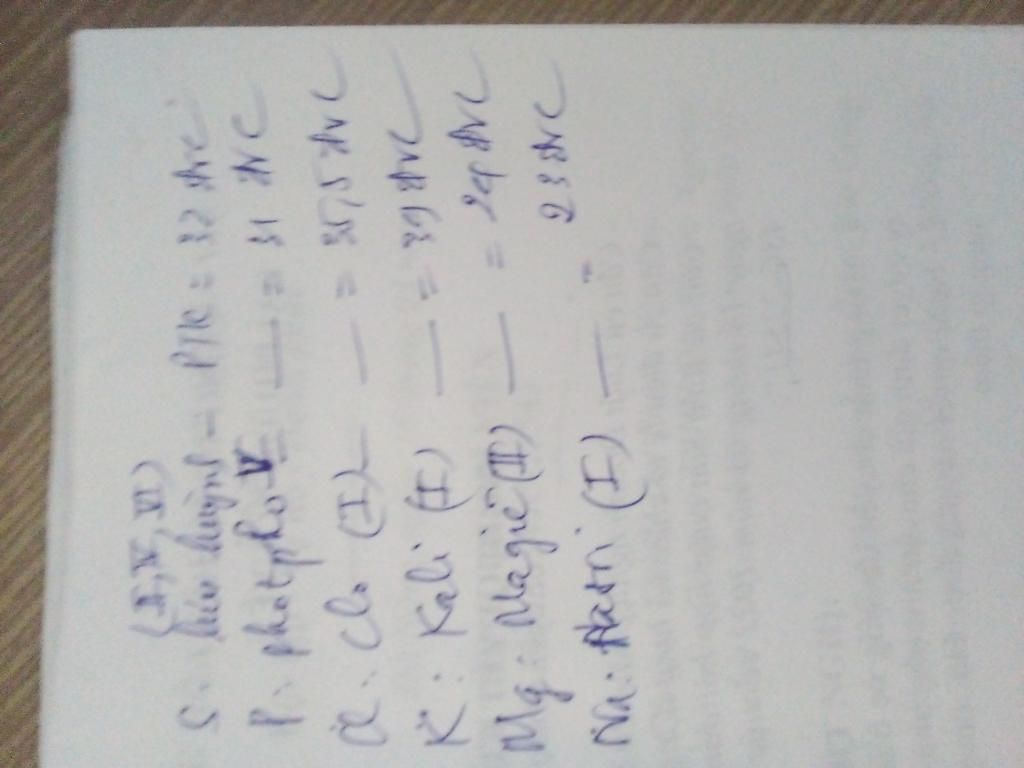 (II, IV, VI)
S: lưu huỳnh – PTK = 32 đvC
P: photpho V — = 31 đvC
Cl: Clo (I) — = 35,5 đvC
K: Kali (I) — = 39 đvC
Mg: Magiê (II) — = 24 đvC
Na: Natri (I) — = 23 đvC